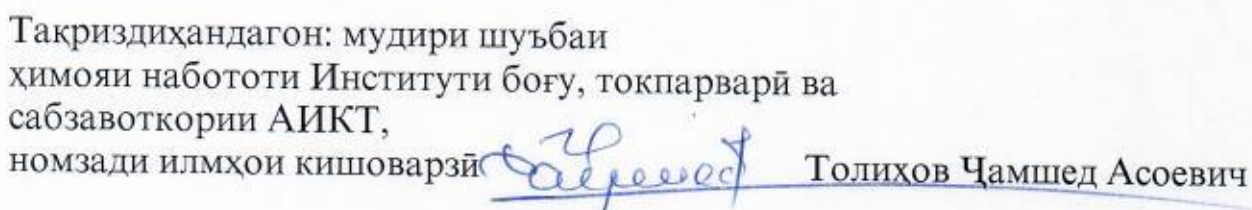 Тақриздиҳандагон: мудири шуъбаи
ҳимояи набототи Институти боғу, токпарварӣ ва
сабзавоткории АИКТ,
номзади илмҳои кишоварзӣ Толиҳов Ҷамшед Асоевич